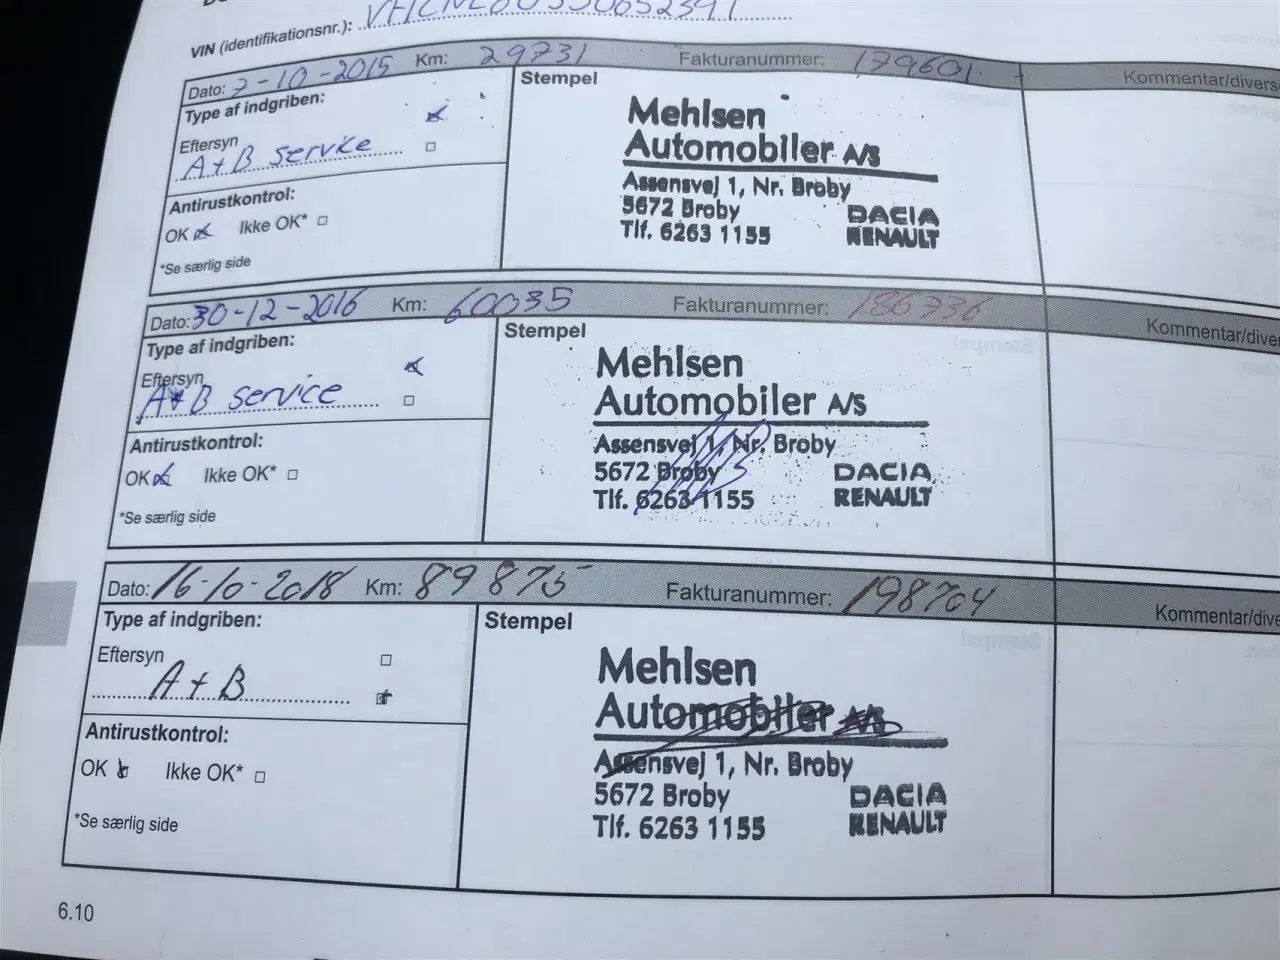 VIN (identifikationsnr.):
Dato: 7-10-2015 Km: 29731 Fakturanummer: 179601 Kommentar/divers
Type af indgriben:
Eftersyn
A+B service
Antirustkontrol:
OK Ikke OK*
*Se særlig side
Stempel
Mehlsen
Automobiler A/S
Assensvej 1, Nr. Broby
5672 Broby DACIA
Tlf. 6263 1155 RENAULT
Dato: 30-12-2016 Km: 60035 Fakturanummer: 186736 Kommentar/diver
Type af indgriben:
Eftersyn
A+B service
Antirustkontrol:
OK Ikke OK*
*Se særlig side
Stempel
Mehlsen
Automobiler A/S
Assensvej 1, Nr. Broby
5672 Broby DACIA
Tlf. 6263 1155 RENAULT
Dato: 16-10-2018 Km: 89875 Fakturanummer: 198704 Kommentar/dive
Type af indgriben:
Eftersyn
A+B
Antirustkontrol:
OK Ikke OK*
*Se særlig side
Stempel
Mehlsen
Automobiler A/S
Assensvej 1, Nr. Broby
5672 Broby DACIA
Tlf. 6263 1155 RENAULT
6.10